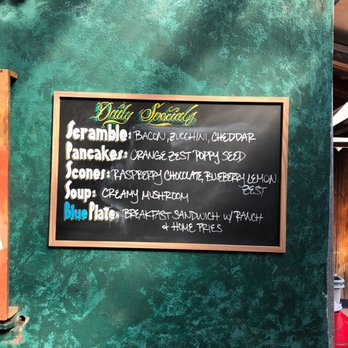 Daily Specials
Scramble: BACON, ZUCCHINI, CHEDDAR
Pancakes: ORANGE ZEST POPPY SEED
Scones: RASPBERRY CHOCOLATE, BLUEBERRY LEMON
ZEST
Soup: CREAMY MUSHROOM
Blue Plate: BREAKFAST SANDWICH W/ RANCH
& HOME FRIES